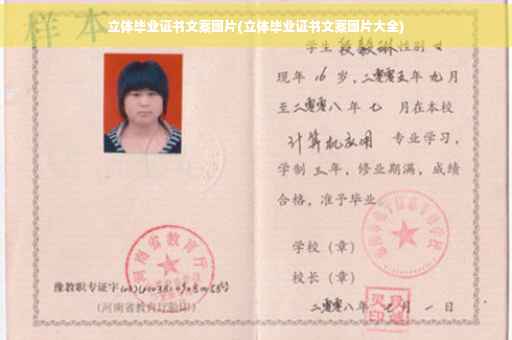 立体毕业证书文案图片(立体毕业证书文案图片大全)
样本
学生 段毅琳 性别 女
现年 16 岁,二零零五年 九 月
至二零零八年 七 月在本校
计算机应用 专业学习,
学制 三 年,修业期满,成绩
合格,准予毕业。
学校(章)
校长(章)
二零零八年 七 月 一 日
河南省教育厅
豫教职专证字
(河南省教育厅验印)